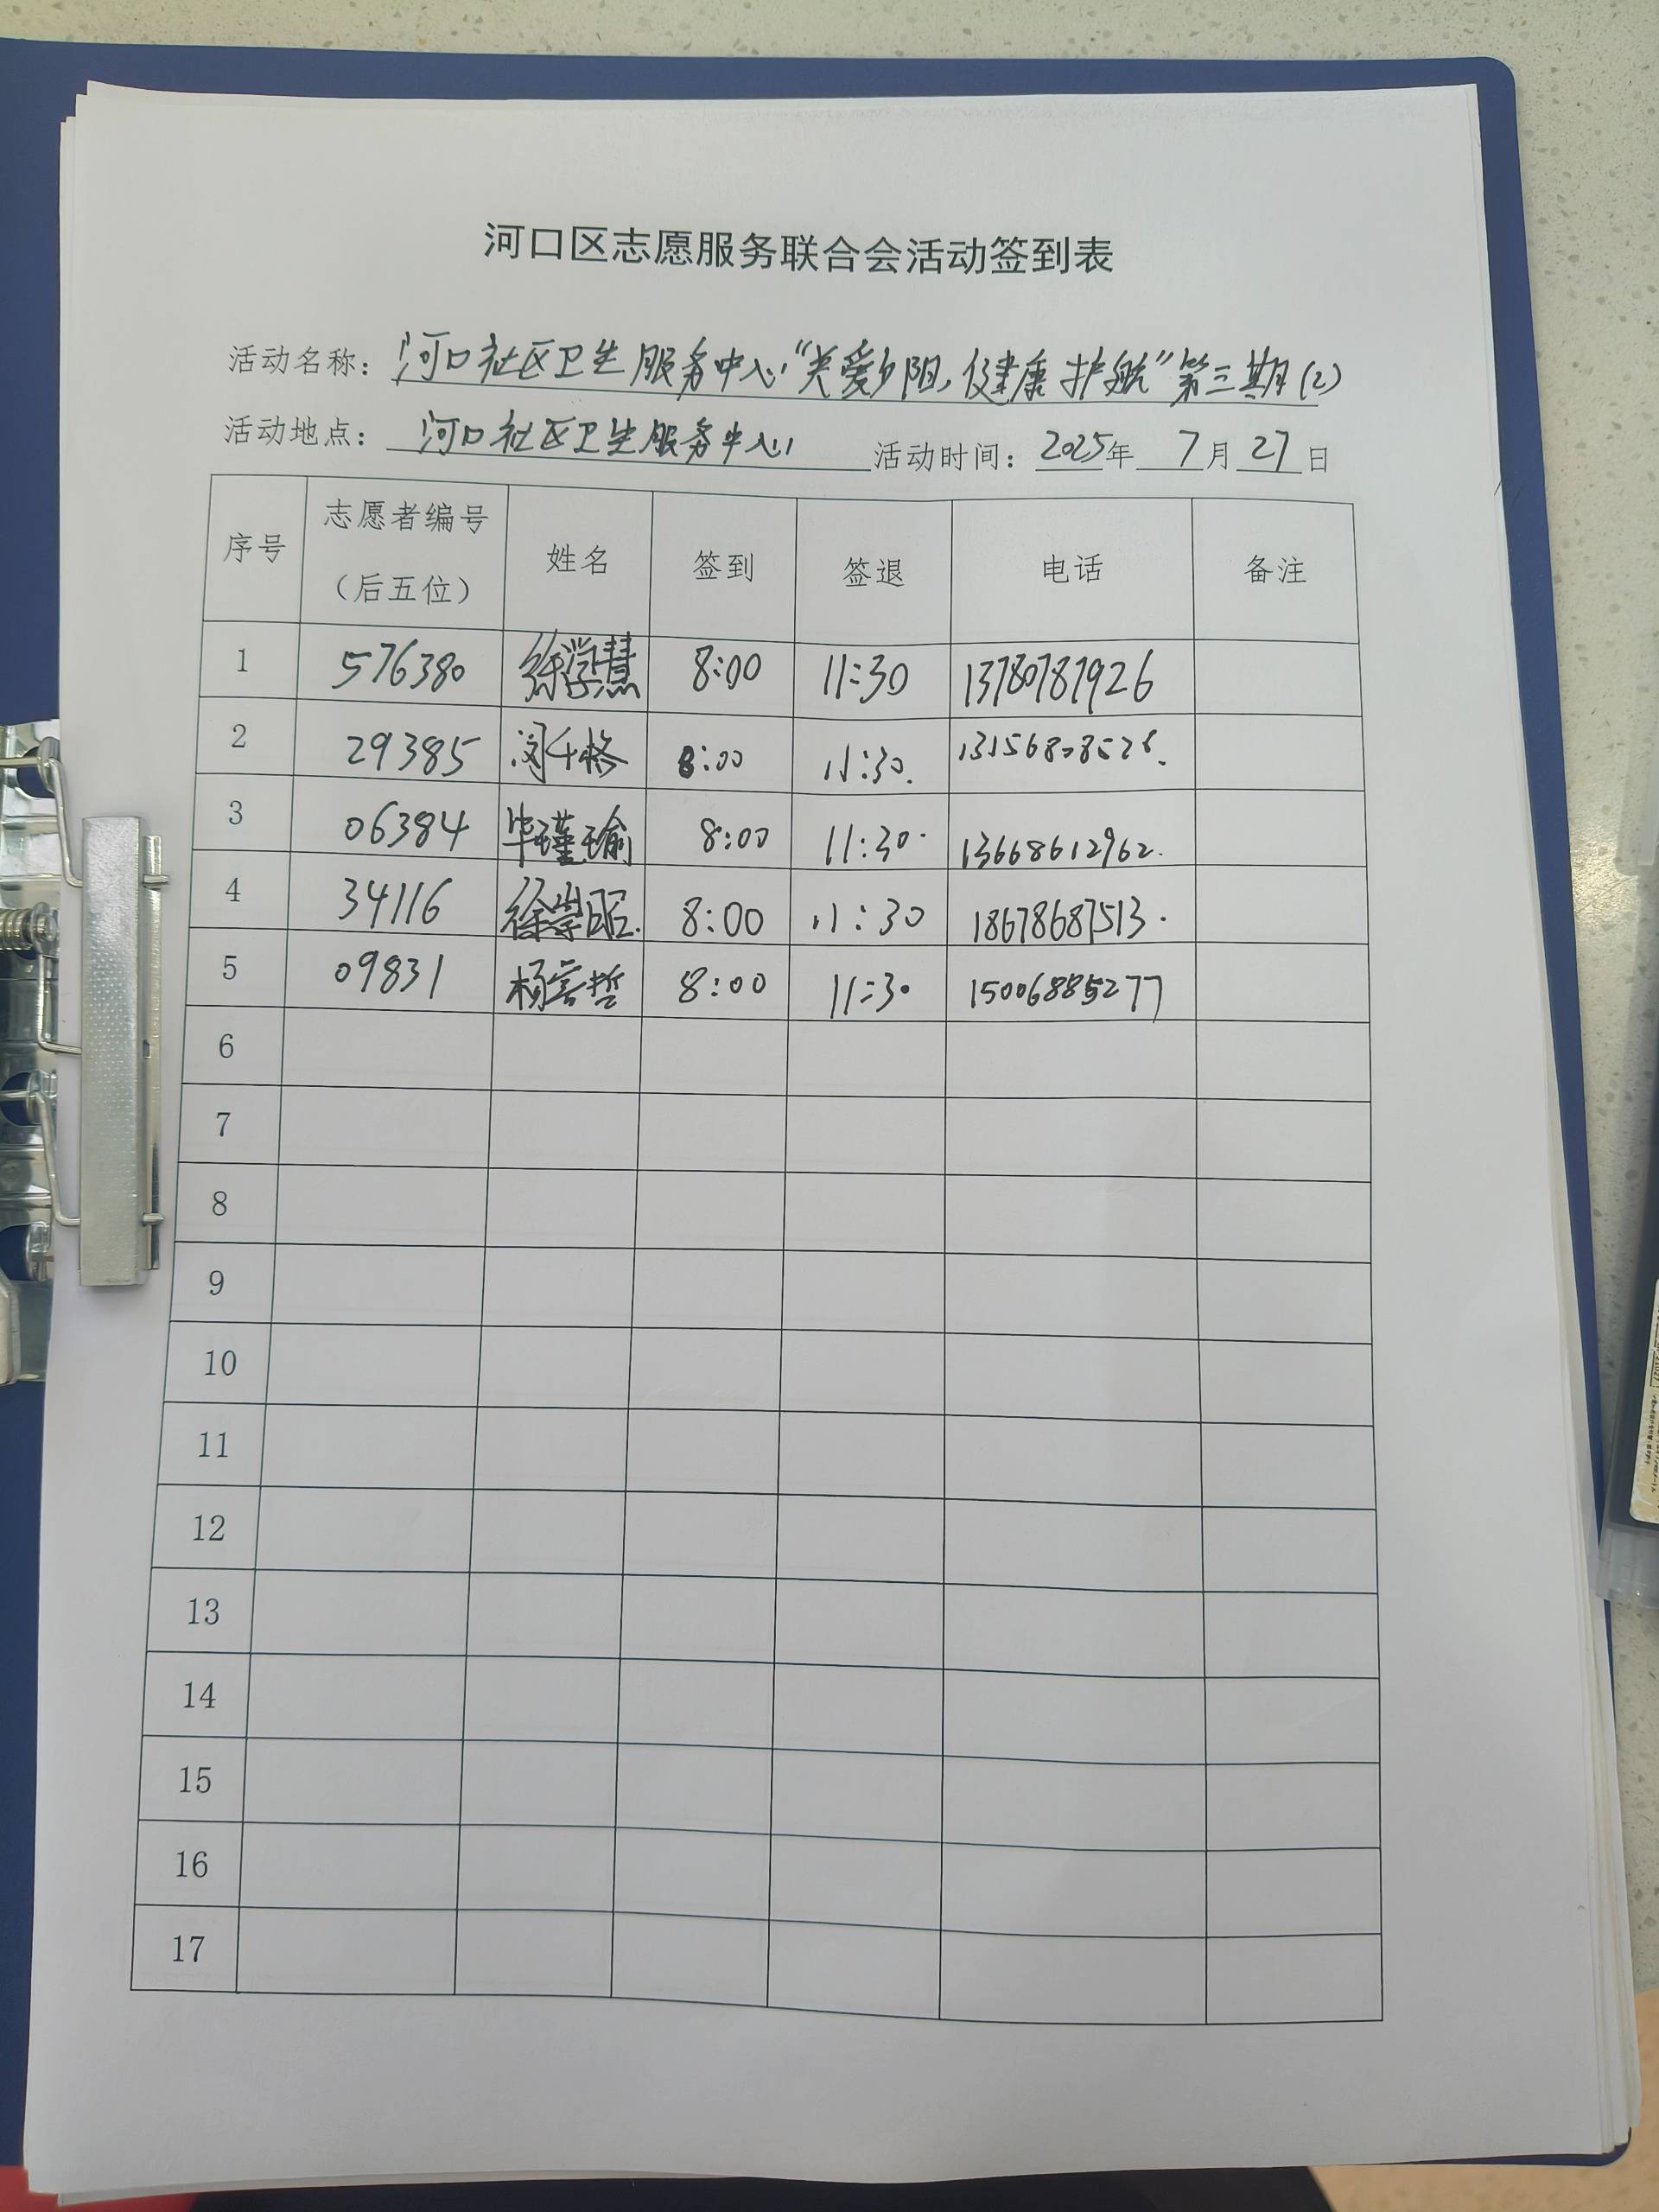 河口区志愿服务联合会活动签到表
活动名称：河口社区卫生服务中心“关爱夕阳，健康护航”第三期(2)
活动地点：河口社区卫生服务中心 活动时间：2025年 7月27日
序号 志愿者编号（后五位） 姓名 签到 签退 电话 备注
1 576380 徐学慧 8:00 11:30 13780787926
2 29385 闫千格 8:00 11:30.
3 06384 毕瑾瑜 8:00 11:30. 13668612962.
4 34116 徐崇昭. 8:00 11:30 18678687513.
5 09831 杨言哲 8:00 11:30 15006885277
6
7
8
9
10
11
12
13
14
15
16
17